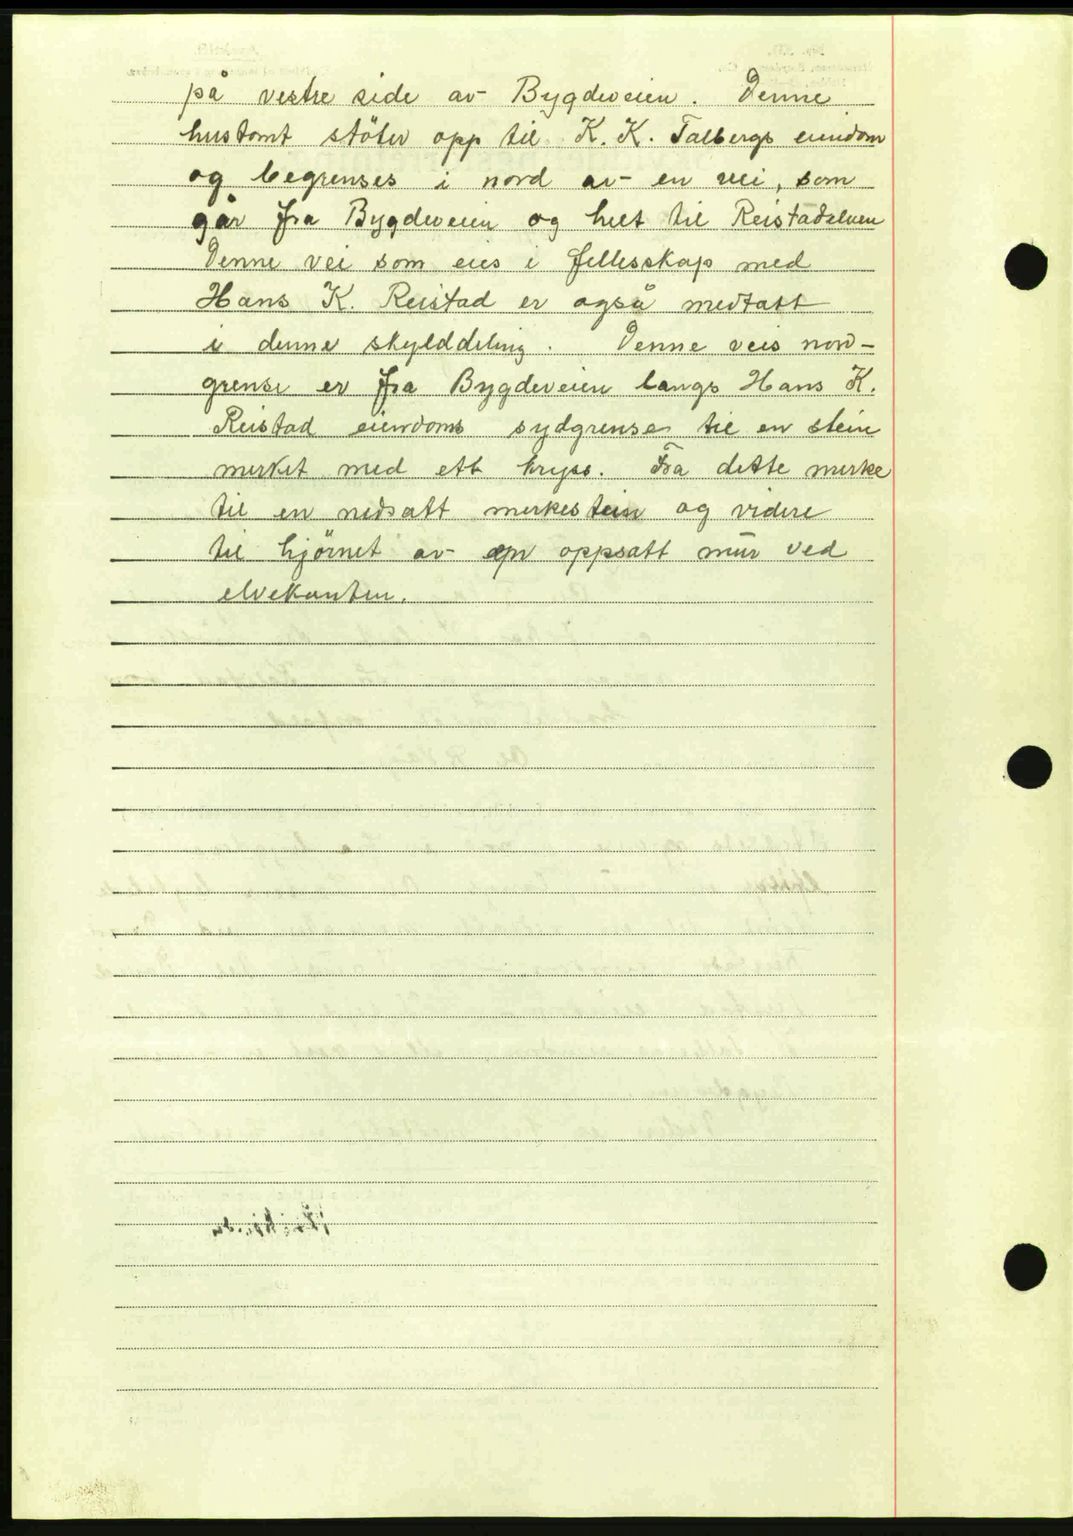 på vestre side av Bygdeveien. Denne
hustomt støter opp til K. K. Talbergs eiendom
og begrenses i nord av en vei, som
går fra Bygdeveien og helt til Reistadelven
Denne vei som eies i fellesskap med
Hans K. Reistad er også medtatt
i denne skylddeling. Denne veis nord-
grense er fra Bygdeveien langs Hans K.
Reistad eiendoms sydgrense til en stein
merket med ett kryss. Fra dette merke
til en nedsatt merkestein og videre
til hjörnet av en oppsatt mur ved
elvekanten.